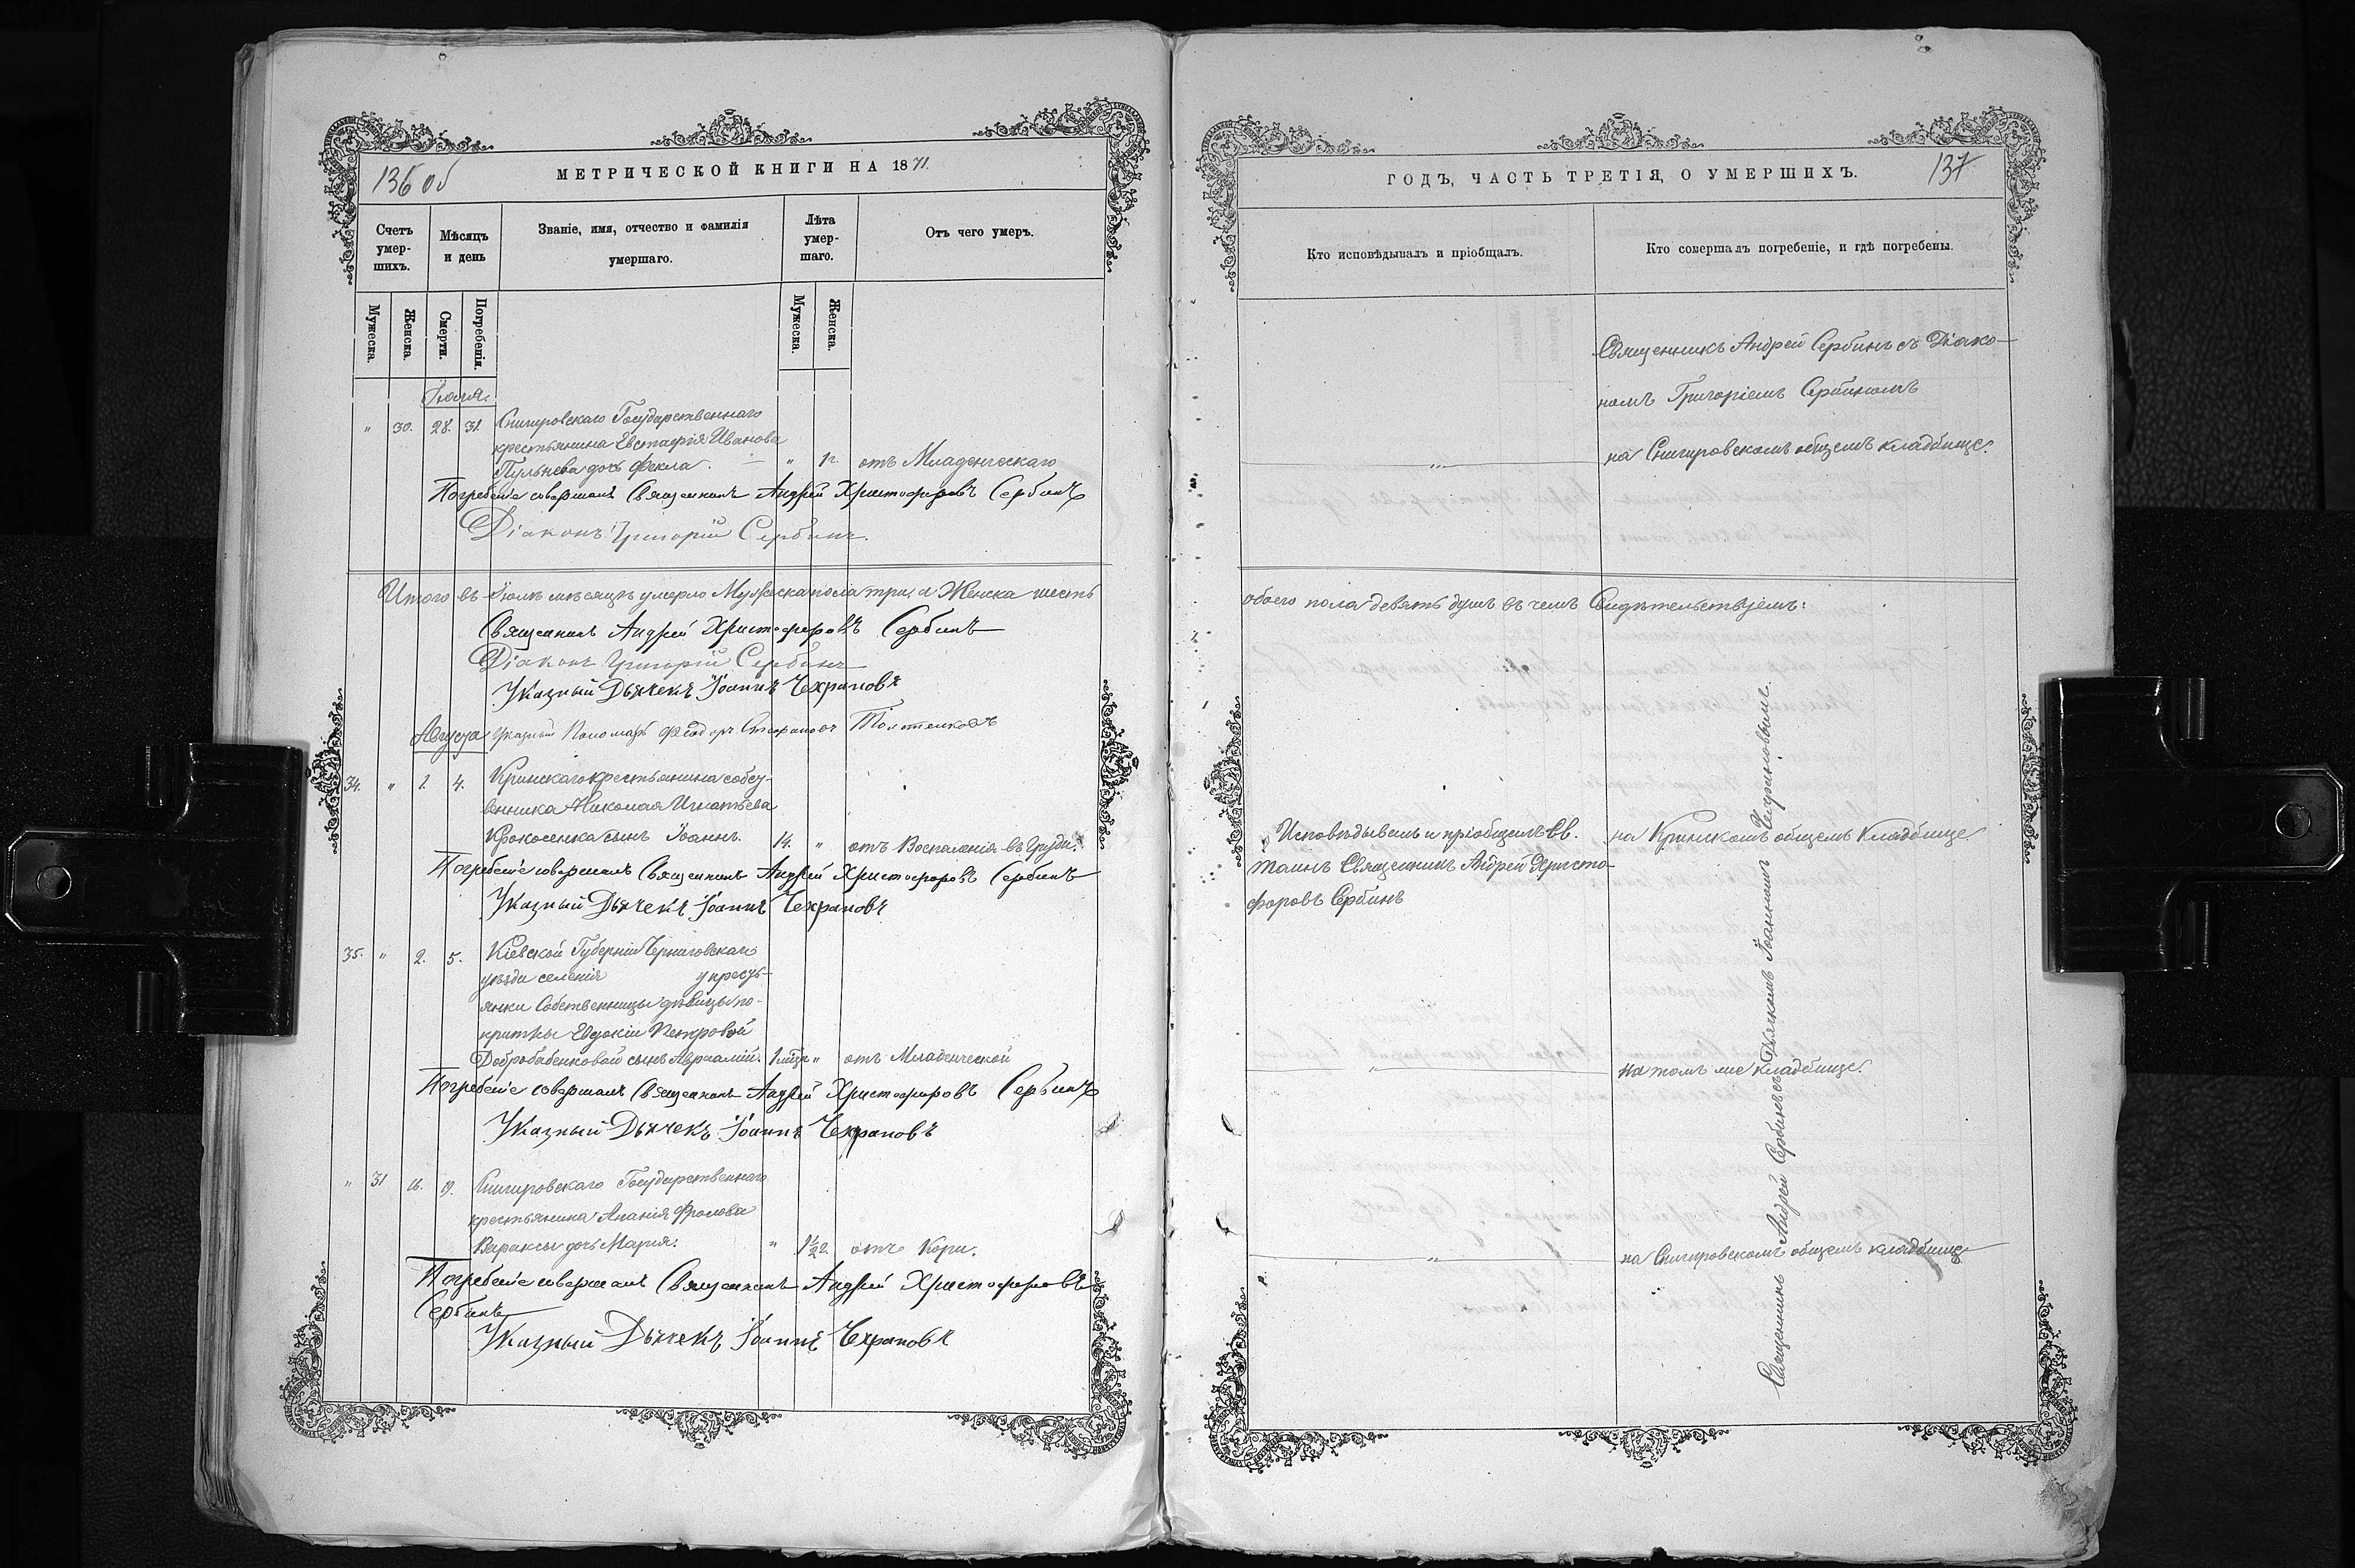 136 об
МЕТРИЧЕСКОЙ КНИГИ НА 1871.
Счетъ умер-шихъ.
Мѣсяцъ и день
Званіе, имя, отчество и фамилія умершаго.
Лѣта умер-шаго.
Отъ чего умеръ.
Мужеска.
Женска.
Смерти.
Погребенія.
Мужеска.
Женска.
Іюля.
" 30. 28. 31. Снигировскаго Государственнаго
крестьянина Евстафія Иванова
дочь Фекла. " 1г. отъ Младенческаго
Погребеніе совершалъ Священникъ Андрей Христофоровъ Сербинъ
Діаконъ Григорій Сербинъ.
Итого въ Іюлѣ мѣсяцѣ умерло Мужеска пола три, а Женска шесть
Священникъ Андрей Христофоровъ Сербинъ
Діаконъ Григорій Сербинъ
Указный Дьячекъ Іоаннъ Чехрановъ
Августа
Указный Пономарь Феодоръ Стефановъ
34. " 1. 4. Кринскаго крестьянина собст-
венника Николая Игнатьева
Крокосенка сынъ Іоаннъ. 14. " отъ Воспаленія въ Груди.
Погребеніе совершалъ Священникъ Андрей Христофоровъ Сербинъ
Указный Дьячекъ Іоаннъ Чехрановъ
35. " 2. 5. Кіевской Губерніи Черниговскаго
уѣзда селенія у крест-
янки Собственницы дѣвицы по-
критки Евдокіи Петровой
Добробабенковой сынъ Авраамій. 1 мѣц. " отъ Младенческой
Погребеніе совершалъ Священникъ Андрей Христофоровъ Сербинъ
Указный Дьячекъ Іоаннъ Чехрановъ
" 31 16. 19. Снигировскаго Государственнаго
крестьянина Ананія Фролова
Вараксы дочь Марія. " 1½г. отъ Кори.
Погребеніе совершалъ Священникъ Андрей Христофоровъ
Сербинъ
Указный Дьячекъ Іоаннъ Чехрановъ
ГОДЪ, ЧАСТЬ ТРЕТІЯ, О УМЕРШИХЪ.
137
Кто исповѣдывалъ и пріобщалъ.
Кто совершалъ погребеніе, и гдѣ погребены.
Священникъ Андрей Сербинъ съ Діако-
номъ Григоріемъ Сербиномъ
" на Снигировскомъ общемъ кладбище.
обоего пола девять душъ въ чемъ Свидѣтельствуемъ:
Исповѣдывалъ и пріобщалъ Св.
Таинъ Священникъ Андрей Христо-
форовъ Сербинъ
на Кринскомъ общемъ Кладбище
" на томъ же кладбище.
" на Снигировскомъ общемъ кладбище
Священникъ Андрей Сербинъ съ Дьячкомъ Іоанномъ Чехрановымъ.